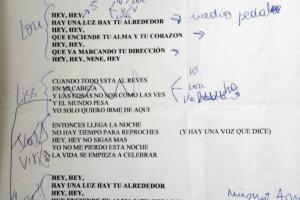 HEY, HEY,
HAY UNA LUZ HAY TU ALREDEDOR
HEY, HEY, HEY,
QUE ENCIENDE TU ALMA Y TU CORAZON
HEY, HEY, HEY,
QUE VA MARCANDO TU DIRECCIÓN
HEY, HEY, NENE, HEY
medio pedal
CUANDO TODO ESTA AL REVES
EN MI CABEZA
Y LAS COSAS NO SON COMO LAS VES
Y EL MUNDO PESA
YO SOLO QUIERO IRME DE AQUI
ENTONCES LLEGA LA NOCHE
NO HAY TIEMPO PARA REPROCHES (Y HAY UNA VOZ QUE DICE)
HEY, HEY NO SIGAS MAS
YO NO ME PIERDO ESTA NOCHE
LA VIDA SE EMPIEZA A CELEBRAR
HEY, HEY,
HAY UNA LUZ HAY TU ALREDEDOR
HEY, HEY, HEY,